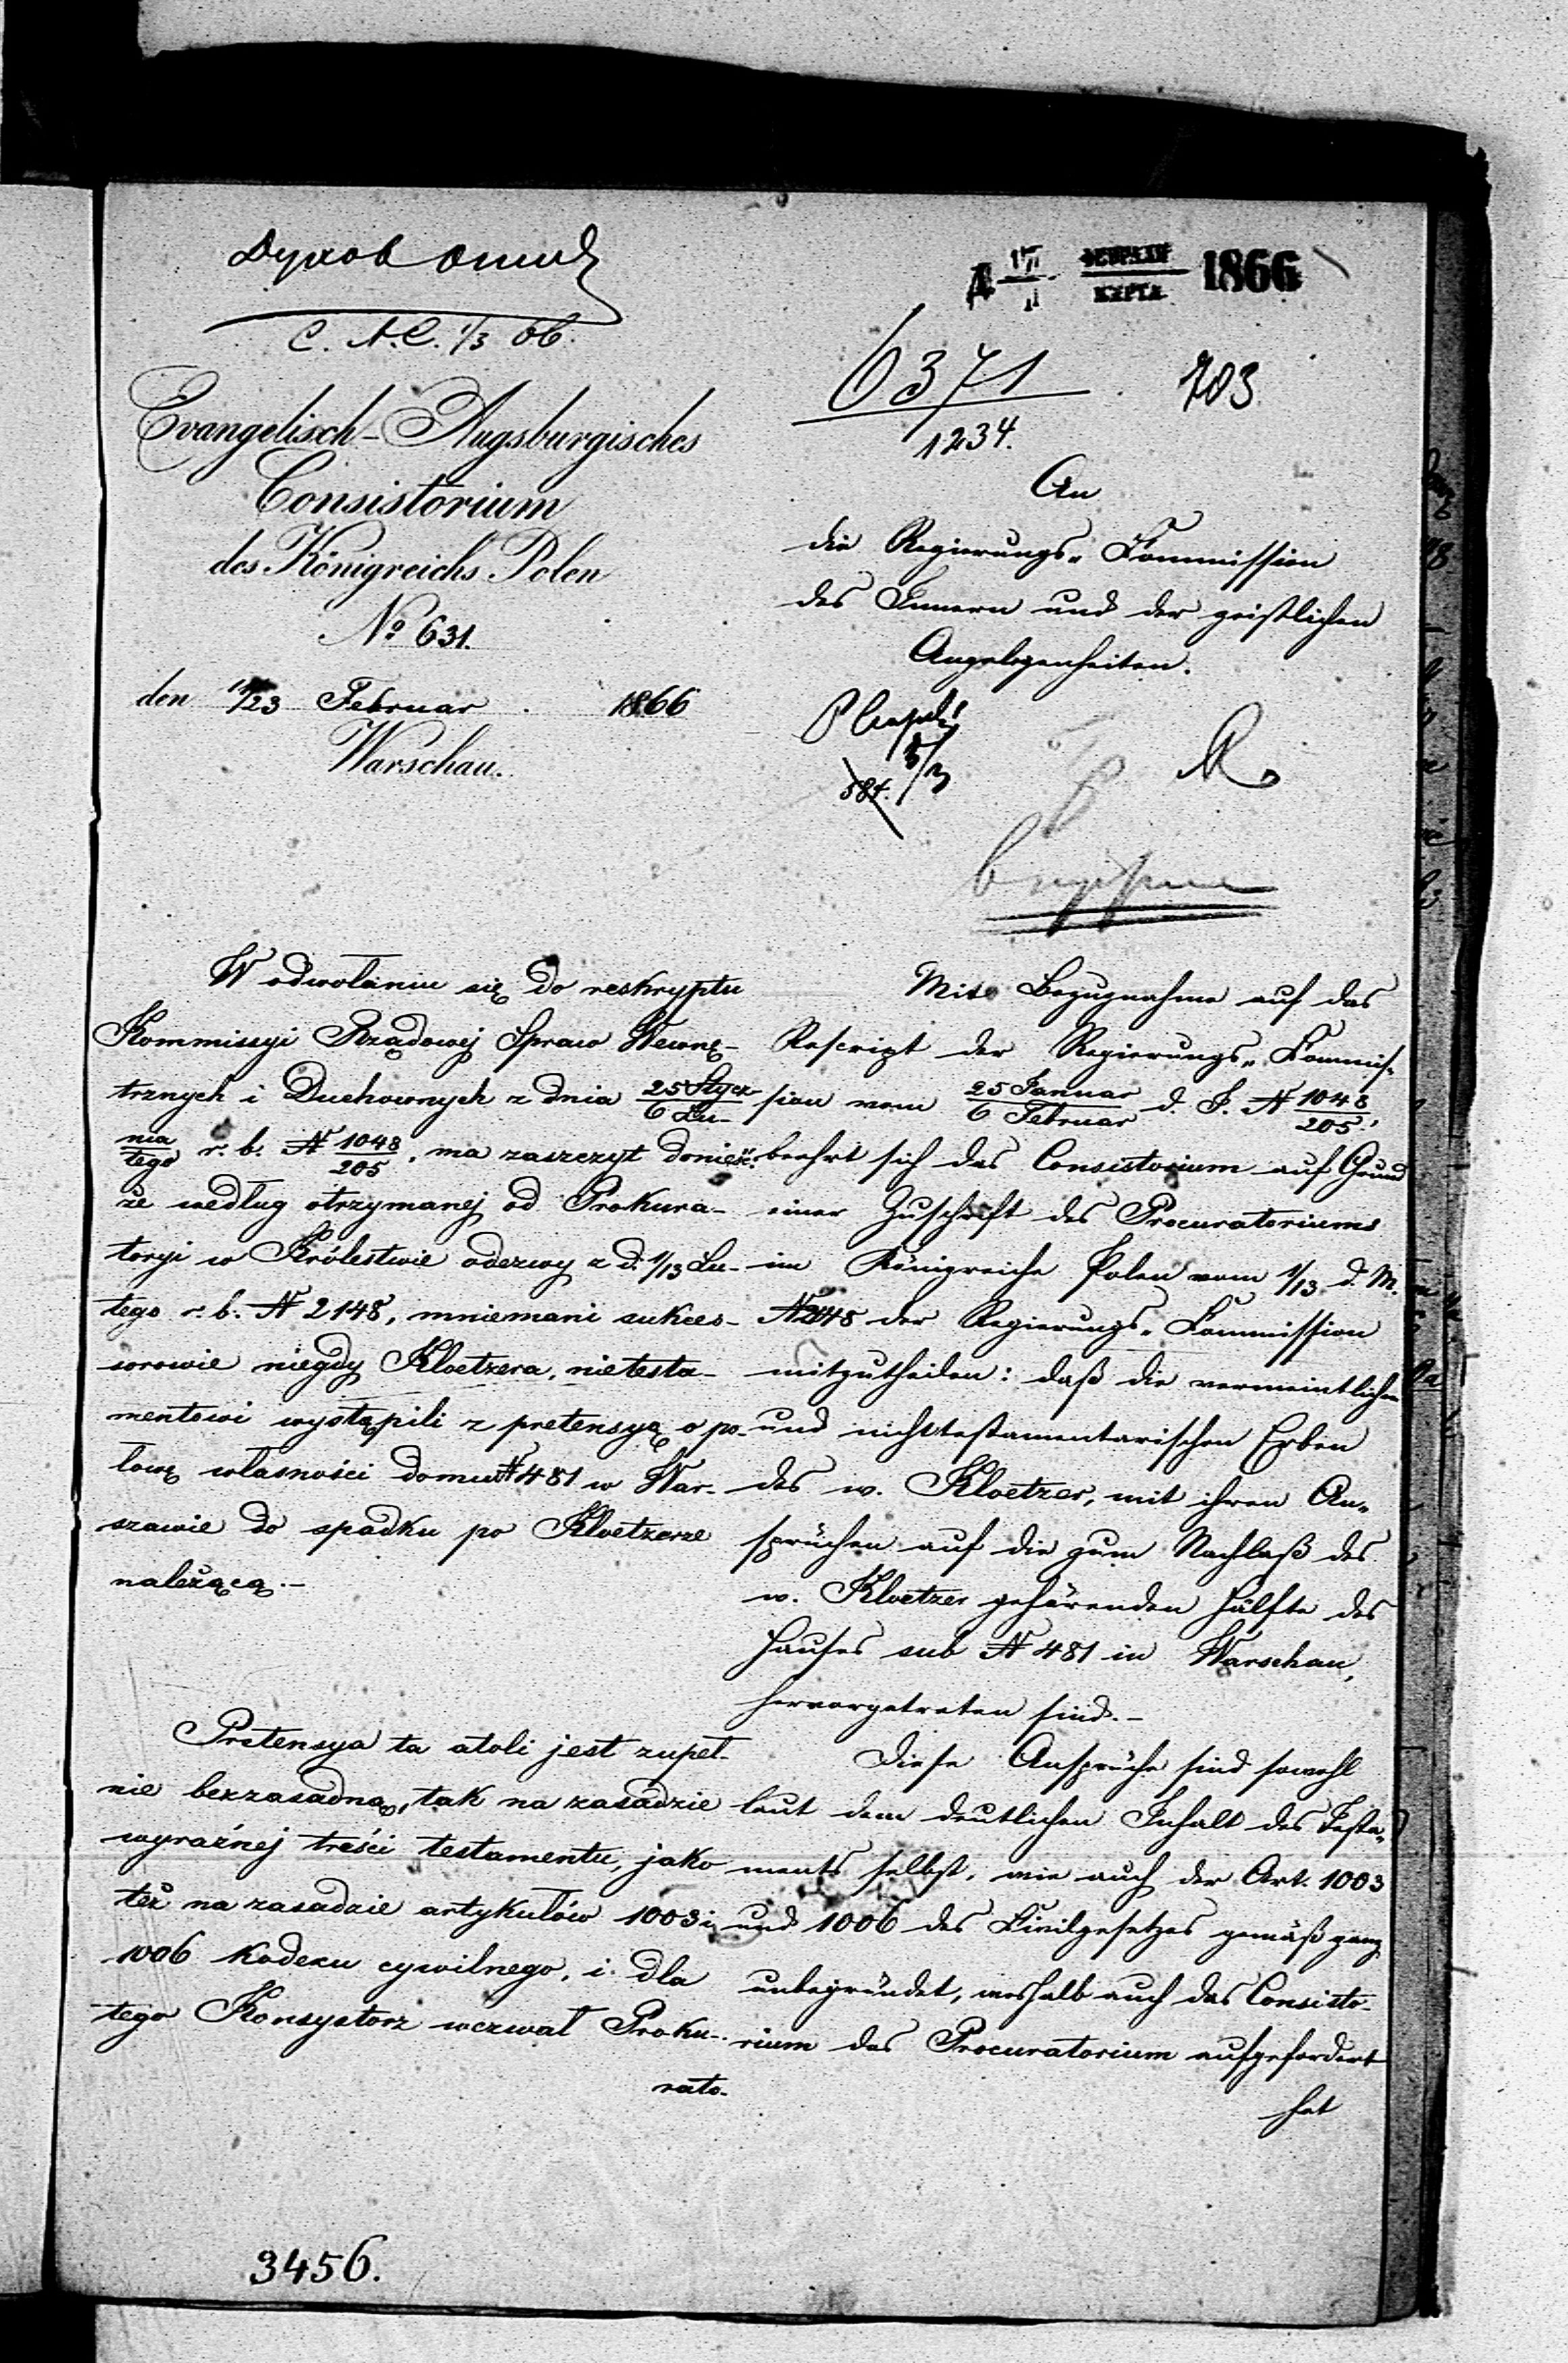 Духов
1866
6371
1234.
703
Evangelisch-Augsburgisches
Consistorium
des Königreichs Polen
№ 631.
den 11/23 Februar 1866
Warschau.
An
die Regierungs-Kommission
des Innern und der geistlichen
Angelegenheiten.
584.
W odwołaniu się do reskryptu
Kommissyi Rządowej Spraw Wewnę-
trznych i Duchownych z dnia 25 Stycz-/6 Lu-
nia/tego r. b. № 1048/205, ma zaszczyt donieść:
że według otrzymanej od Prokura-
toryi w Królestwie odezwy z d. 1/13 Lu-
tego r. b. № 2148, mniemani sukces-
sorowie niegdy Kloetzera, nietesta-
mentowi wystąpili z pretensyą o po-
łowę własności domu № 481 w War-
szawie do spadku po Kloetzerze
należącą.-
Pretensya ta atoli jest zupeł-
nie bezzasadną, tak na zasadzie
wyraźnej treści testamentu, jako
też na zasadzie artykułów 1003 i
1006 kodexu cywilnego, i dla
tego Konsystorz wezwał Proku-
rato-
Mit Bezugnahme auf das
Rescript der Regierungs-Kommis-
sion vom 25 Januar/6 Februar d. J. № 1048/205,
beehrt sich das Consistorium auf Grund
einer Zuschrift des Procuratoriums
im Königreiche Polen vom 1/13 d. M.
№ 2148 der Regierungs-Kommission
mitzutheilen: daß die vermeintlichen
und nichttestamentarischen Erben
des w. Kloetzer, mit ihren An-
sprüchen auf die zum Nachlaß des
w. Kloetzer gehörenden Hälfte des
Hauses sub № 481 in Warschau,
hervorgetreten sind.-
Diese Ansprüche sind sowohl
laut dem deutlichen Inhalt des Testa-
ments selbst, wie auch der Art. 1003
und 1006 des Civilgesetzes gemäß ganz
unbegründet, weshalb auch das Consisto-
rium das Procuratorium aufgefordert
hat
3456.